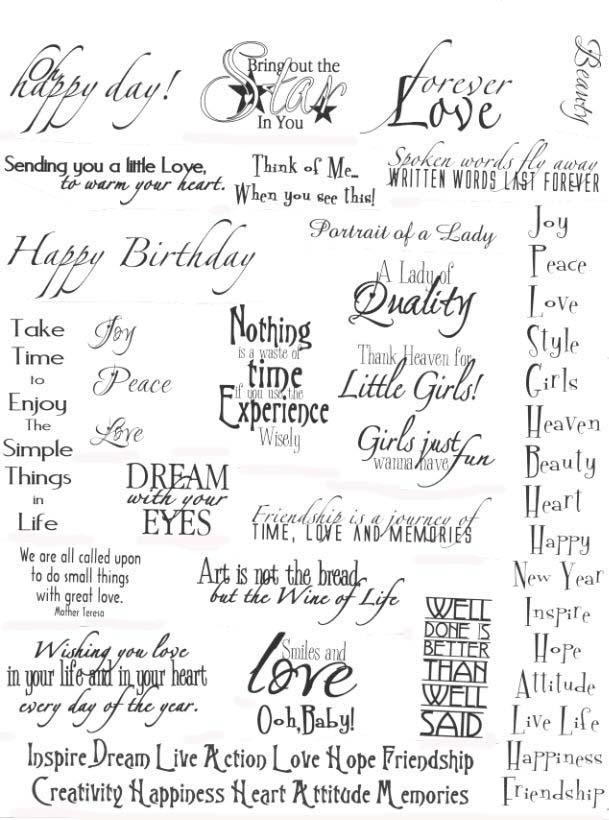 Oh
happy day!
Bring out the
Star
In You
forever
Love
Beauty
Sending you a little Love,
to warm your heart.
Think of Me...
When you see this!
Spoken words fly away
WRITTEN WORDS LAST FOREVER
Happy Birthday
Portrait of a Lady
A Lady of
Quality
Take
Time
to
Enjoy
The
Simple
Things
in
Life
Joy
Peace
Love
Nothing
is a waste of
time
if you use the
Experience
Wisely
Thank Heaven for
Little Girls!
Girls just
wanna have fun
DREAM
with your
EYES
Friendship is a journey of
TIME, LOVE AND MEMORIES
We are all called upon
to do small things
with great love.
Mother Teresa
Art is not the bread
but the Wine of Life
Wishing you love
in your life and in your heart
every day of the year.
Smiles and
love
Ooh, Baby!
WELL
DONE IS
BETTER
THAN
WELL
SAID
Joy
Peace
Love
Style
Girls
Heaven
Beauty
Heart
Happy
New Year
Inspire
Hope
Attitude
Live Life
Happiness
Friendship
Inspire Dream Live Action Love Hope Friendship
Creativity Happiness Heart Attitude Memories